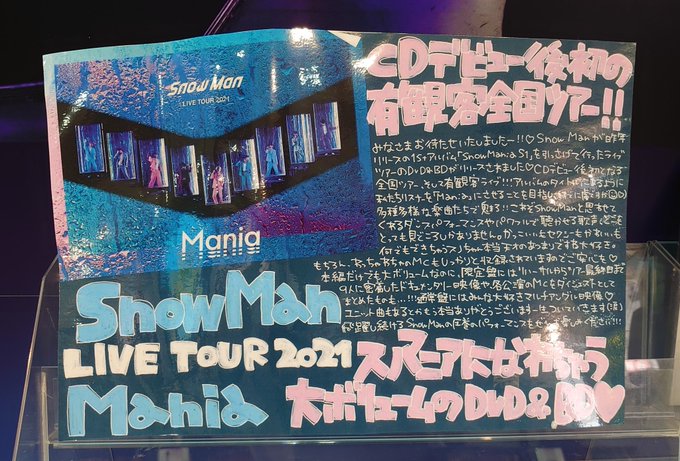 Snow Man
LIVE TOUR 2021
Mania
CDデビュー後初の
有観客全国ツアー!!
みなさまお待たせいたしましたー!!♡Snow Manが昨年
リリースの1stアルバム「Snow Mania S1」を引っさげて行ったライブ
ツアーのDVD&BDがリリースされました♡CDデビュー後初となる
全国ツアー、そして有観客ライブ!!!アルバムのタイトルにあるように
私たちリスナーを「Mania」にさせることを目指し
多種多様な楽曲たちで魅せる!これぞSnow Manと思わせて
くれるダンスパフォーマンスやパワフルで聴かせる歌声などなど
とっても見どころしかありません。かっこいいもセクシーもかわいいも
何でもできちゃう
もちろん、わっちゃわちゃのMCもしっかりと収録されていますのでご安心を♡
本編だけでも大ボリュームなのに、限定盤にはリハーサルからツアー最終日まで
9人に密着したドキュメント映像や、各公演のMCをダイジェストとして
まとめたものも…!!!通常盤にはみんな大好きマルチアングル映像♡
ユニット曲もあるとかもう本当ありがとうございます一生ついていきます(涙)
し続けるSnow Manの圧巻のパフォーマンスをぜひお楽しみください!!
Snow Man
LIVE TOUR 2021
Mania
スノマニアになれちゃう
大ボリュームのDVD&BD♡